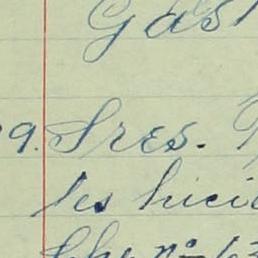 Gas
9. Sres.
les hici
Che nº 63